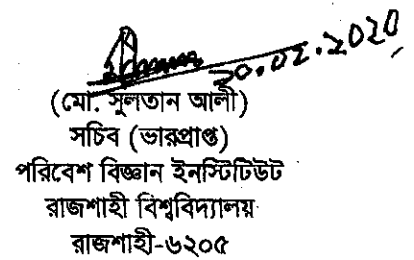 ২০.০২.২০২০
(মো. সুলতান আলী)
সচিব (ভারপ্রাপ্ত)
পরিবেশ বিজ্ঞান ইনস্টিটিউট
রাজশাহী বিশ্ববিদ্যালয়
রাজশাহী-৬২০৫